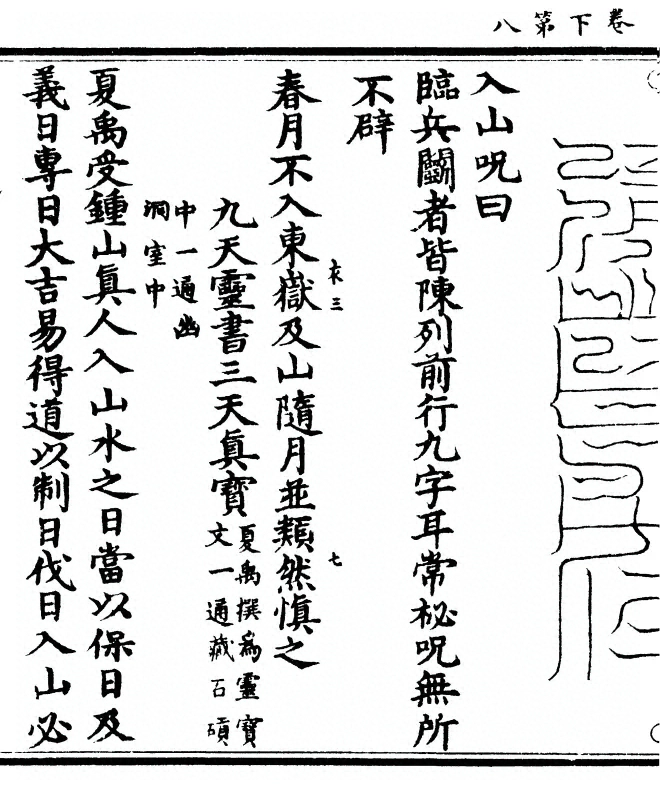 卷下第八
入山呪曰
臨兵鬭者皆陳列前行九字耳常柲呪無所
不辟
衣三
七
春月不入東嶽及山隨月並類然慎之
九天靈書三天眞寶
夏禹撰爲靈寶
文一通藏石磧
中一通幽
洞室中
夏禹受鍾山眞人入山水之日當以保日及
義日專日大吉易得道以制日伐日入山必